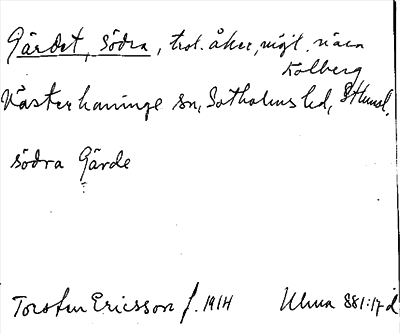 Gärdet, Södra, trol. åker, möjl. nära
Kolberg
Västerhaninge sn, Sotholms hd, Sthmsl.
södra Gärde
Torsten Ericsson f. 1914 Ulma 881:17 d